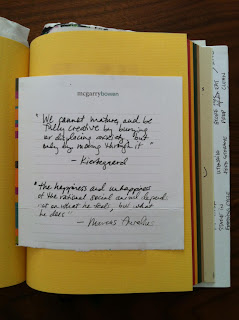 mcgarrybowen
"We cannot mature, and be
fully creative by burying
or displacing anxiety, but
only by moving through it"
- Kierkegaard
"The happiness and unhappiness
of the rational social animal depends
not on what he feels, but what
he does"
- Marcus Aurelius